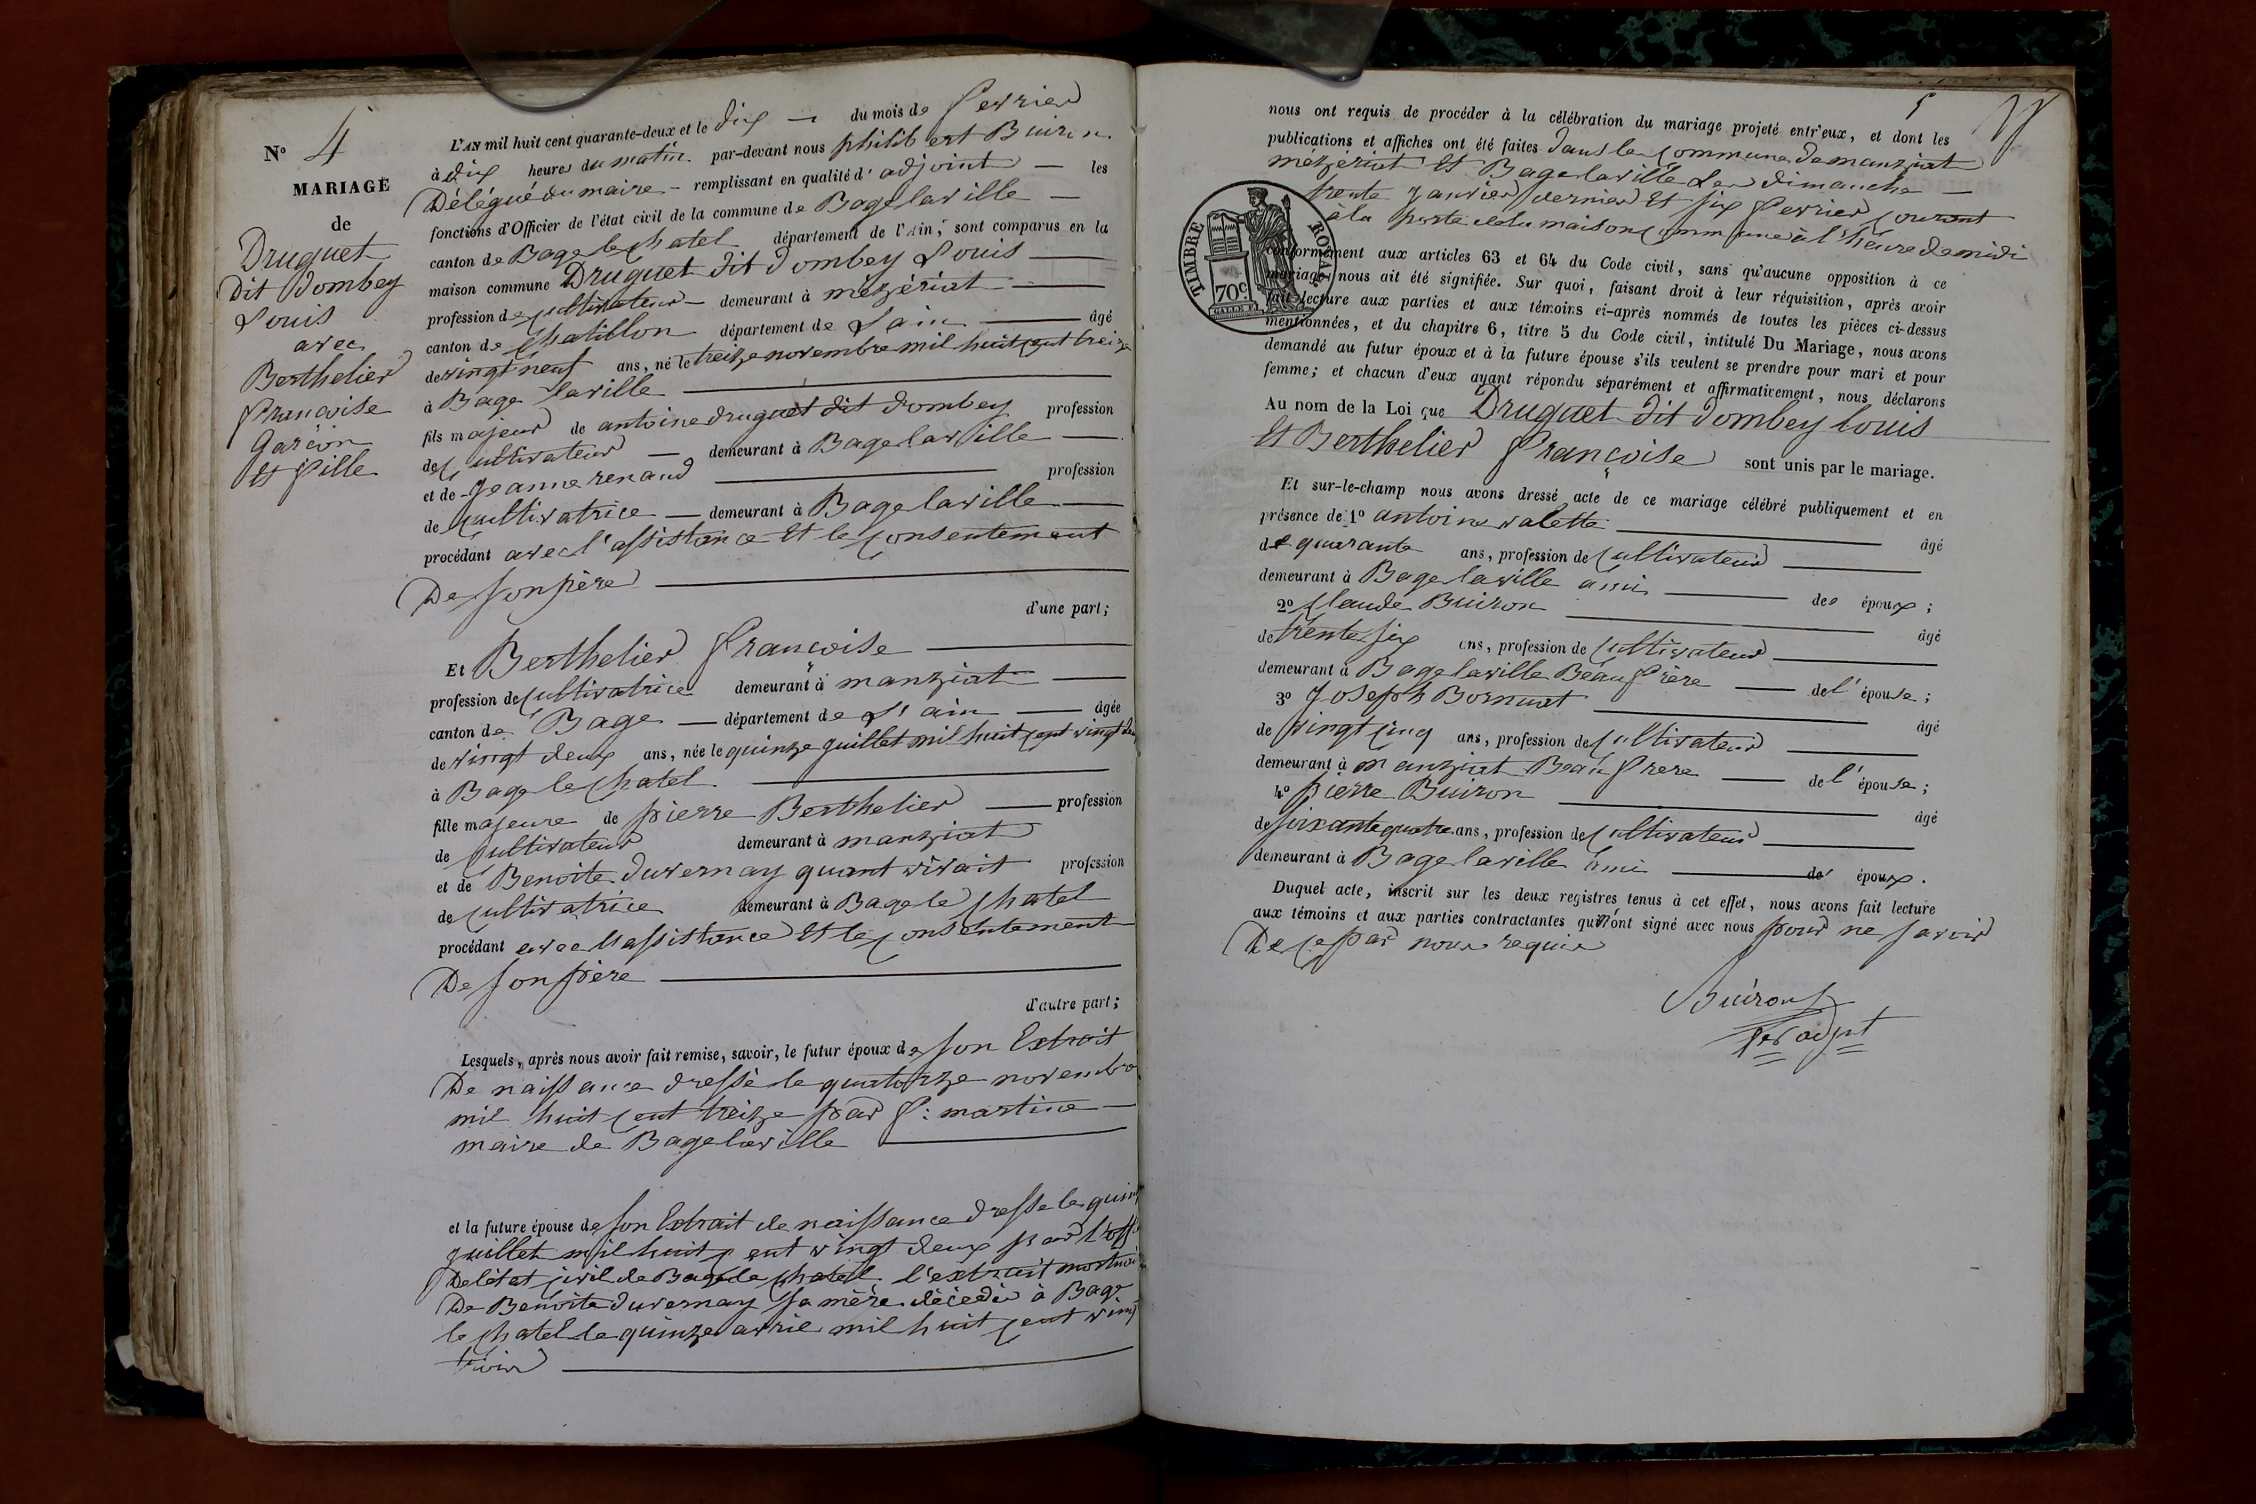 N° 4
MARIAGE
de
Druguet
Dit Dombey
Louis
avec
Berthelier
françoise
Garçon
Et fille
L'AN mil huit cent quarante-deux et le dix du mois de fevrier
à dix heures du matin par-devant nous philibert Buiron
Délégué du maire remplissant en qualité d'adjoint les
fonctions d'Officier de l'état civil de la commune de Bagelaville
canton de Bage le chatel département de l'Ain, sont comparus en la
maison commune Druguet dit Dombey Louis
profession de cultivateur demeurant à mezériat
canton de Chatillon département de L'ain âgé
de vingt neuf ans, né le treize novembre mil huit cent treize
à Bage laville
fils majeur de antoine druguet dit Dombey profession
de cultivateur demeurant à Bagelaville
et de Jeanne renaud profession
de cultivatrice demeurant à Bagelaville
procédant avec l'assistance Et le consentement
De son père
d'une part;
Et Berthelier françoise
profession de cultivatrice demeurant à manziat
canton de Bage département de L'ain âgée
de vingt deux ans, née le quinze juillet mil huit cent vingt deux
à Bage le chatel
fille majeure de pierre Berthelier profession
de cultivateur demeurant à manziat
et de Benoite Duvernay quant vivait profession
de cultivatrice demeurant à Bage le chatel
procédant avec l'assistance Et le consentement
De son père
d'autre part;
Lesquels, après nous avoir fait remise, savoir, le futur époux de son Extrait
De naissance dressé le quatorze novembre
mil huit cent treize par f: martine
maire de Bagelaville
et la future épouse de son Extrait de naissance dresse le quinze
juillet mil huit cent vingt deux par l'off
De létat civil de Bage le chatel, l'extrait mortuai
De Benoite Duvernay sa mère décédé à Bage
le chatel le quinze avril mil huit cent vingt
trois
5
nous ont requis de procéder à la célébration du mariage projeté entr'eux, et dont les
publications et affiches ont été faites dans les communes de manziat
mezériat Et Bagelaville Les dimanche
trente janvier dernier Et six fevrier courant
à la porte de la maison commune à l'heure de midi
conformément aux articles 63 et 64 du Code civil, sans qu'aucune opposition à ce
mariage nous ait été signifiée. Sur quoi, faisant droit à leur réquisition, après avoir
fait lecture aux parties et aux témoins ci-après nommés de toutes les pièces ci-dessus
mentionnées, et du chapitre 6, titre 5 du Code civil, intitulé Du Mariage, nous avons
demandé au futur époux et à la future épouse s'ils veulent se prendre pour mari et pour
femme; et chacun d'eux ayant répondu séparément et affirmativement, nous déclarons
Au nom de la Loi que Druguet dit Dombey louis
Et Berthelier françoise sont unis par le mariage.
TIMBRE ROYAL
70c.
Et sur-le-champ nous avons dressé acte de ce mariage célébré publiquement et en
présence de 1° antoine valette âgé
de quarante ans, profession de cultivateur
demeurant à Bagelaville ami des époux;
2° Claude Buiron âgé
de trente six ans, profession de cultivateur
demeurant à Bagelaville Beau frère de l'épouse;
3° Joseph Bornuat âgé
de vingt cinq ans, profession de cultivateur
demeurant à manziat Beau frere de l'épouse;
4° pierre Buiron âgé
de soixante quatre ans, profession de cultivateur
demeurant à Bagelaville ami des époux.
Duquel acte, inscrit sur les deux registres tenus à cet effet, nous avons fait lecture
aux témoins et aux parties contractantes qui n'ont signé avec nous pour ne savoir
De ce par nous requis
Buiron
adjnt